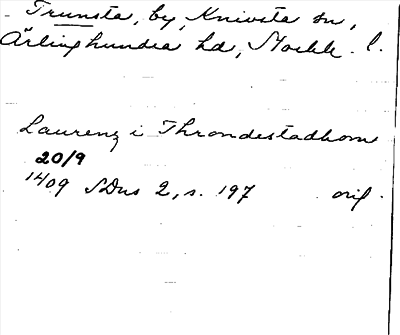 Trunsta, by, Knivsta sn,
Ärlinghundra hd, Stockh. l.
Laurenz i Throndestadhom
20/9
1409 SDns 2, s. 197 orig.